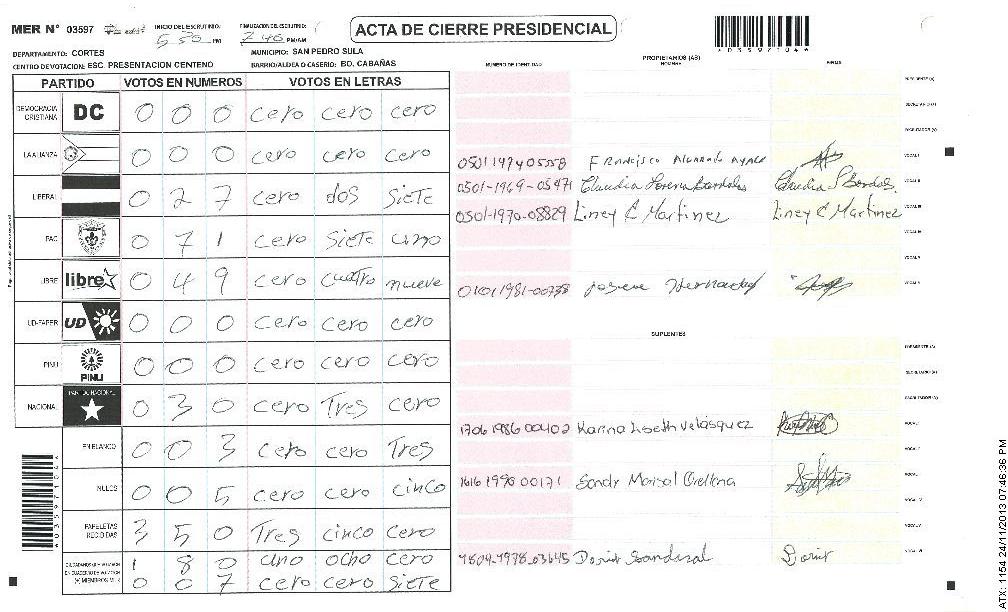 MER N° 03597 INICIO DEL ESCRUTINIO: 5 30 PM FINALIZACION DEL ESCRUTINIO: 7 40 PM/AM ACTA DE CIERRE PRESIDENCIAL
DEPARTAMENTO: CORTES MUNICIPIO: SAN PEDRO SULA
CENTRO DE VOTACION: ESC. PRESENTACION CENTENO BARRIO/ALDEA O CASERIO: BO. CABAÑAS
NUMERO DE IDENTIDAD PROPIETARIOS (AS) NOMBRE FIRMA
PARTIDO VOTOS EN NUMEROS VOTOS EN LETRAS
DEMOCRACIA CRISTIANA DC 0 0 0 cero cero cero
LA ALIANZA 0 0 0 cero cero cero
LIBERAL 0 2 7 cero dos siete
PAC 0 7 1 cero siete uno
LIBRE libre 0 4 9 cero cuatro nueve
UD-FAPER UD 0 0 0 cero cero cero
PINU PINU 0 0 0 cero cero cero
NACIONAL PARTIDO NACIONAL 0 3 0 cero Tres cero
EN BLANCO 0 0 3 cero cero Tres
NULOS 0 0 5 cero cero cinco
PAPELETAS RECIBIDAS 3 5 0 Tres cinco cero
CIUDADANOS QUE VOTARON 1 8 0 uno ocho cero
(+) MIEMBROS MER 0 0 7 cero cero siete
PRESIDENTE (A)
SECRETARIO (A)
ESCRUTADOR (A)
0501197405558 Francisco VOCAL I
0501-1969-05971 Claudia Lorena Bardales Claudia VOCAL II
0501-1970-08829 Liney C Martinez Liney C Martinez VOCAL III
VOCAL IV
VOCAL V
Hernandez
SUPLENTES
PRESIDENTE (A)
SECRETARIO (A)
ESCRUTADOR (A)
1706 1986 00402 Karina Lisseth Velásquez VOCAL I
1616 1990 00171 Sandr Marisol Orellana
1804-1978-03645 Sandoval VOCAL VI
*03597104*
*03597104*
ATX: 1154 24/11/2013 07:46:36 PM